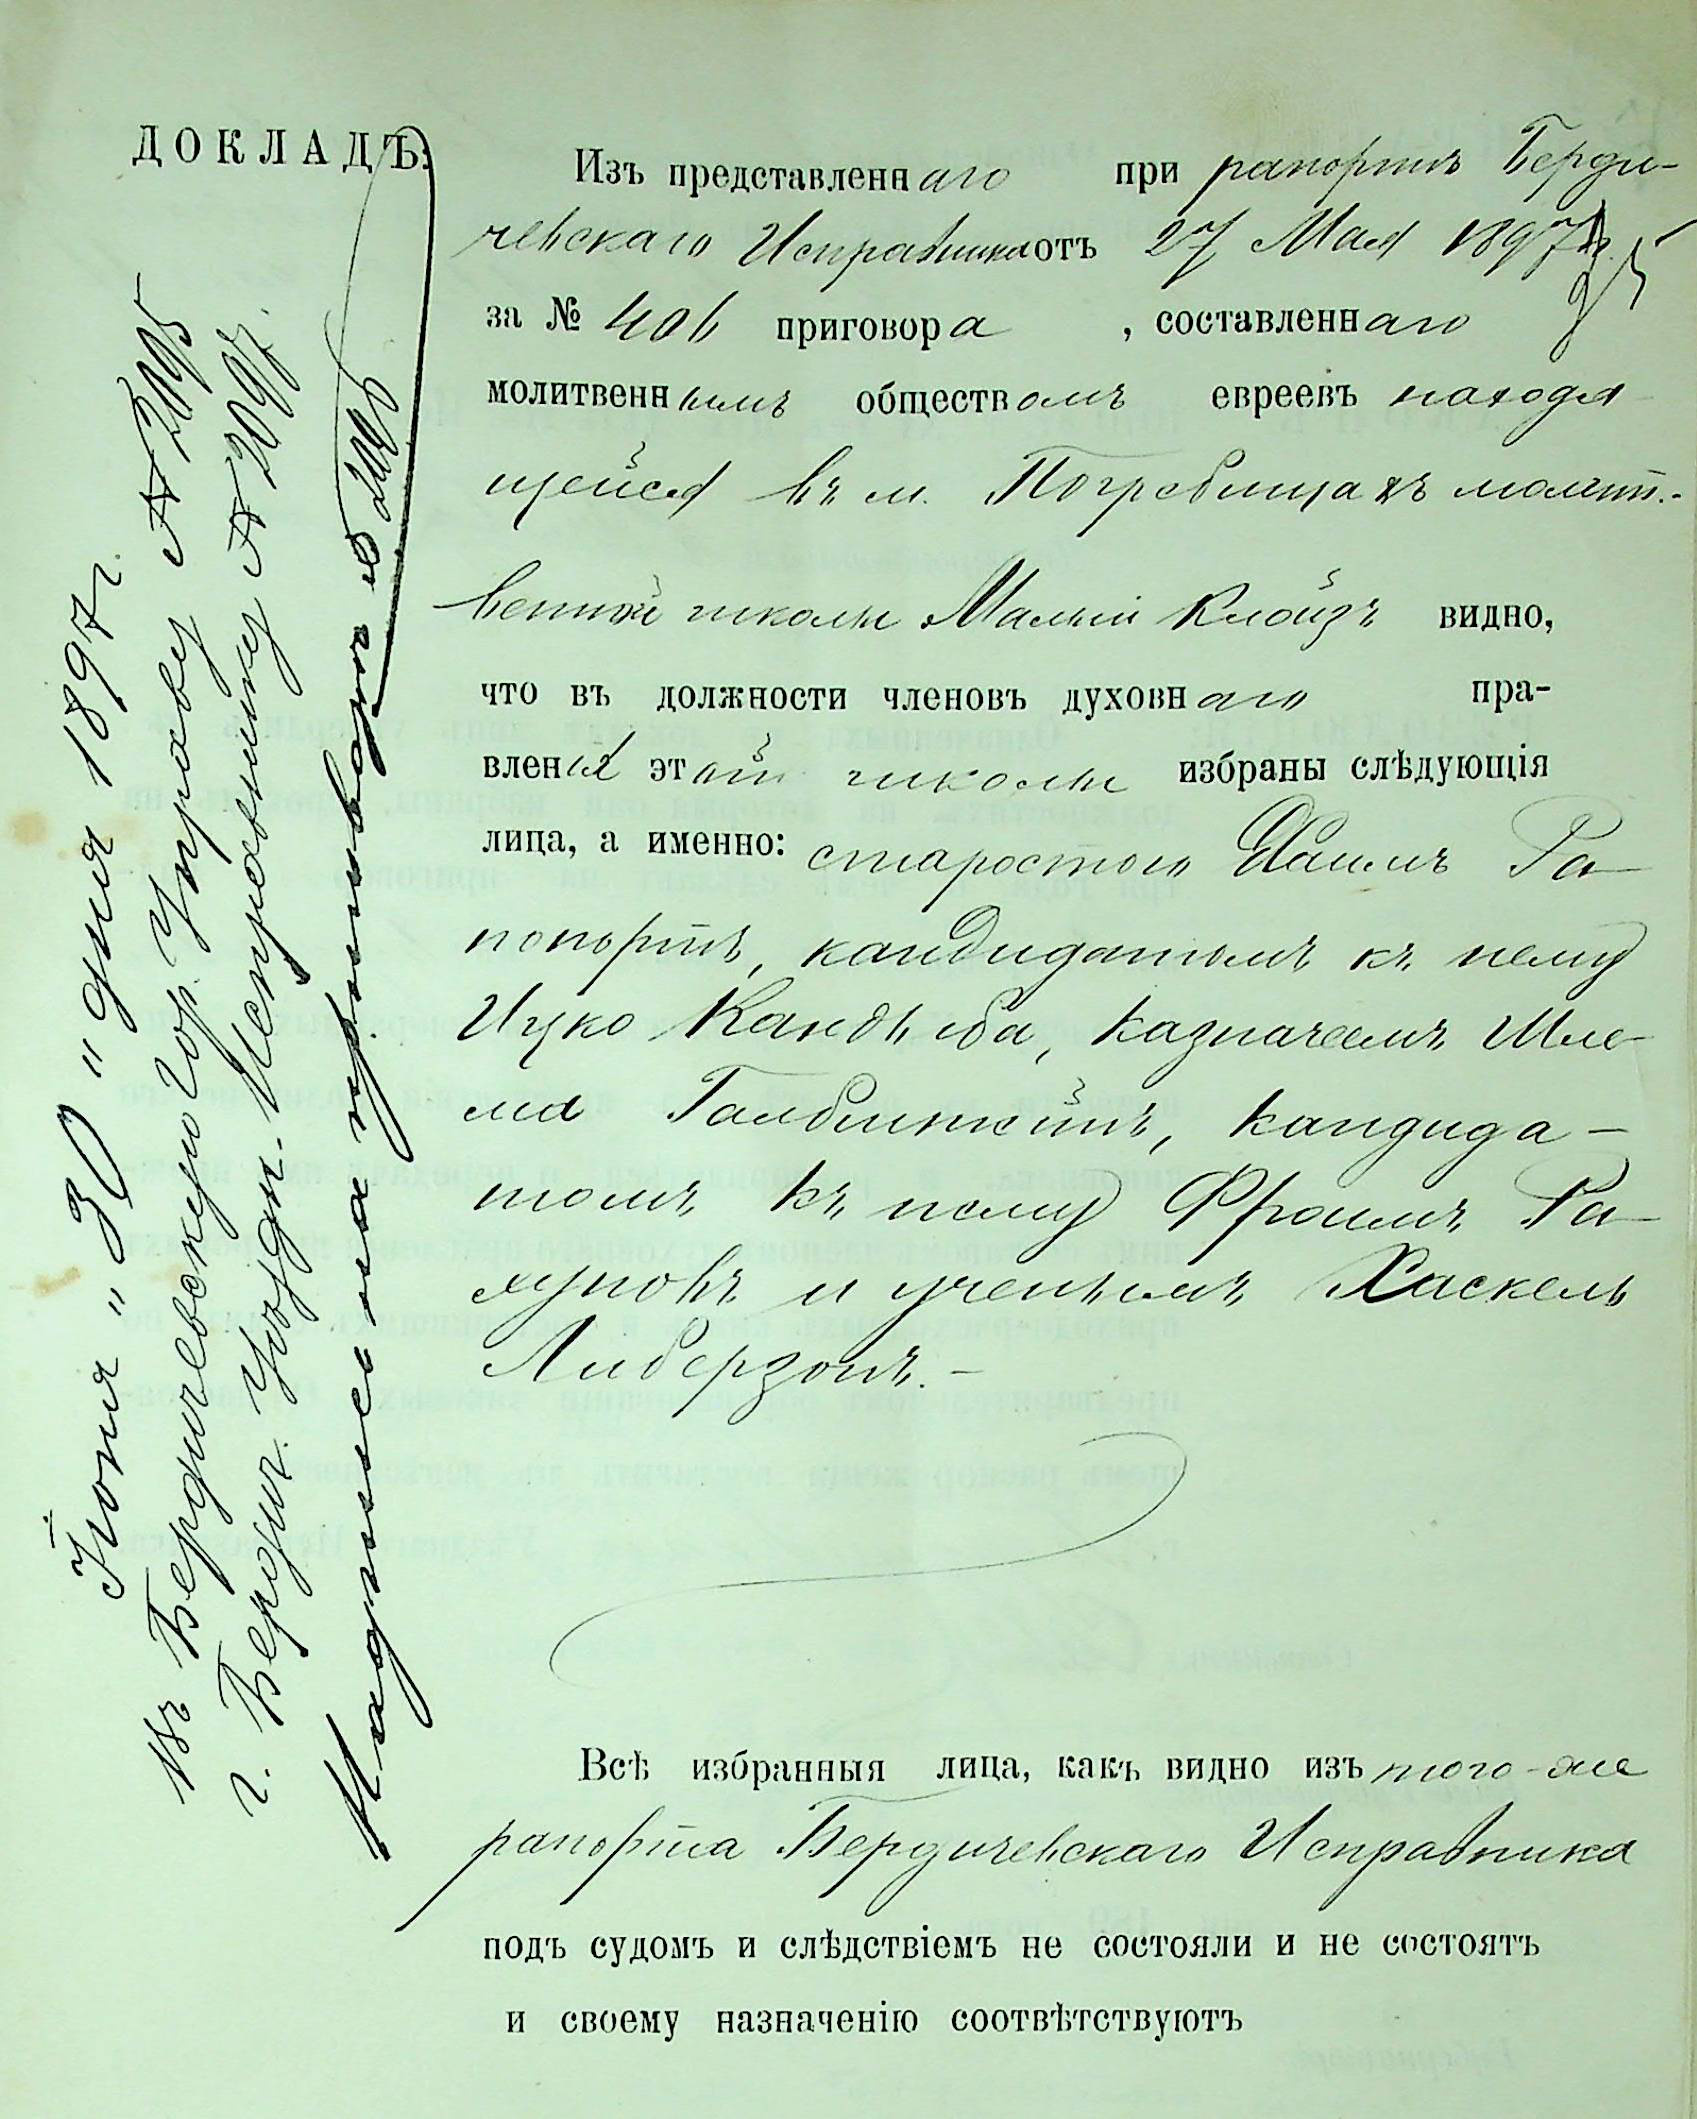 ДОКЛАДЪ.
Изъ представленнаго при рапортѣ Берди-
чевскаго Исправника отъ 27 Мая 1897 г.
за № 406 приговора , составленнаго
молитвеннымъ обществомъ евреевъ находя
щейся въ м. Погребищахъ молит.-
венной школы Малый Клойзъ видно,
что въ должности членовъ духовнаго пра-
вленія этой школы избраны слѣдующія
лица, а именно: старостою Хаимъ Ра
попортъ, кандидатомъ къ нему
Ицко Кандыба, казначеемъ Шле-
ма Галбинскій, кандида-
томъ къ нему Фроимъ Ра-
хуновъ и ученымъ Хаскель
Либерзонъ.-
Всѣ избранныя лица, какъ видно изъ того-же
рапорта Бердичевскаго Исправника
подъ судомъ и слѣдствіемъ не состояли и не состоятъ
и своему назначенію соотвѣтствуютъ
Іюня "30" дня 1897 г.
въ Бердичевскую Гор. Управу № 2095
г. Бердич. Уѣздн. Исправнику № 2097.
Надпись на приговорѣ № 2096